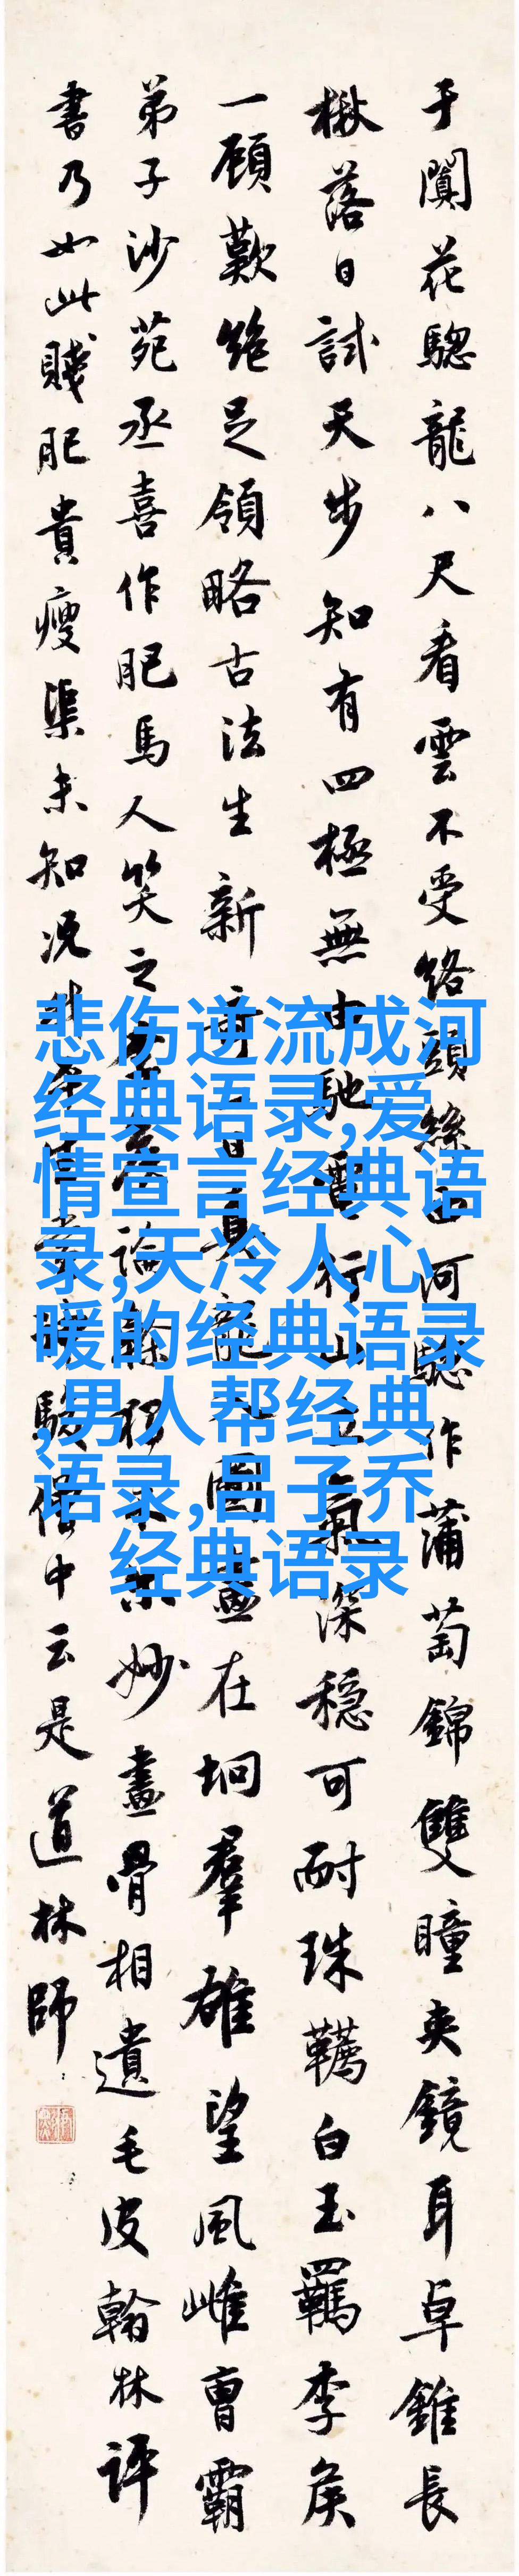 于闐花驄龍八尺看雲不受絡頭絲西河驄作蒲萄錦雙瞳夾鏡耳卓錐長
楸落日試天步知有四極無由馳電行山立氣深穩可耐珠韉白玉羈李侯
一顧歎絕足領略古法生新奇一日真龍入圖畫在坰羣雄望風雌曹霸
弟子沙苑丞喜作肥馬人笑之論幹妙畫骨相遺毛皮翰林評
書乃如此賤肥貴瘦渠未知況我平生賞神駿僧中云是道林師
悲伤逆流成河
经典语录,爱
情宣言经典语
录,天冷人心
暖的经典语录
,男人帮经典
语录,吕子乔
经典语录